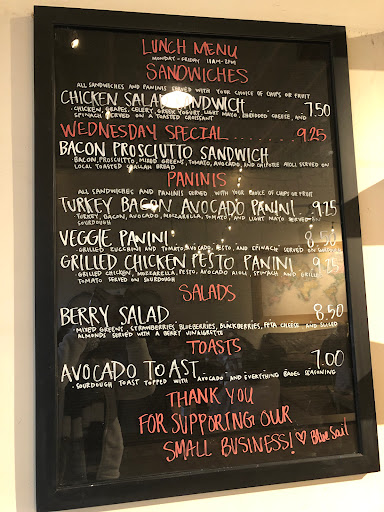 LUNCH MENU
MONDAY - FRIDAY 11AM - 2PM
SANDWICHES
ALL SANDWICHES AND PANINIS SERVED WITH YOUR CHOICE OF CHIPS OR FRUIT
CHICKEN SALAD SANDWICH 7.50
- CHICKEN, GRAPES, CELERY, GREEK YOGURT, LIGHT MAYO, CHEDDAR CHEESE, AND
SPINACH SERVED ON A TOASTED CROISSANT
WEDNESDAY SPECIAL 9.25
BACON PROSCIUTTO SANDWICH
- BACON, PROSCIUTTO, MIXED GREENS, TOMATO, AVOCADO, AND CHIPOTLE AIOLI SERVED ON
LOCAL TOASTED CHALLAH BREAD
PANINIS
ALL SANDWICHES AND PANINIS SERVED WITH YOUR CHOICE OF CHIPS OR FRUIT
TURKEY BACON AVOCADO PANINI 9.25
- TURKEY, BACON, AVOCADO, MOZZARELLA, TOMATO, AND LIGHT MAYO SERVED ON
SOURDOUGH
VEGGIE PANINI 8.50
- GRILLED ZUCCHINI AND TOMATO, AVOCADO, PESTO, AND SPINACH SERVED ON SOURDOUGH
GRILLED CHICKEN PESTO PANINI 9.25
- GRILLED CHICKEN, MOZZARELLA, PESTO, AVOCADO AIOLI, SPINACH AND GRILLED
TOMATO SERVED ON SOURDOUGH
SALADS
BERRY SALAD 8.50
- MIXED GREENS, STRAWBERRIES, BLUEBERRIES, BLACKBERRIES, FETA CHEESE AND SLICED
ALMONDS SERVED WITH A BERRY VINAIGRETTE
TOASTS
AVOCADO TOAST 7.00
- SOURDOUGH TOAST TOPPED WITH AVOCADO AND EVERYTHING BAGEL SEASONING
THANK YOU
FOR SUPPORING OUR
SMALL BUSINESS! ♡ Blue Sail